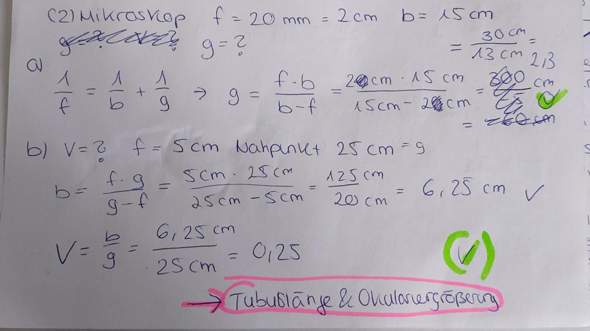 (2) Mikroskop f = 20 mm = 2 cm b = 15 cm
g = ?
a) 1/f = 1/b + 1/g → g = f·b / b-f = 2cm · 15 cm / 15cm - 2cm = 30 cm / 13 cm = 2,3 cm ✓
b) V = ? f = 5 cm Nahpunkt 25 cm = g
b = f·g / g-f = 5cm · 25cm / 25cm - 5cm = 125cm / 20 cm = 6,25 cm ✓
V = b/g = 6,25 cm / 25 cm = 0,25 (✓)
→ Tubuslänge & Okularvergrößerung